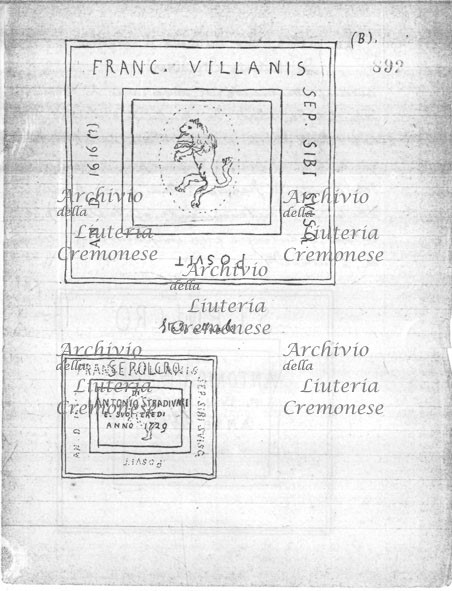 (B).
892
FRANC. VILLANIS
SEP SIBI SVSQ
POSVIT
AN D 1616 (?)
Archivio
della
Liuteria
Cremonese
Archivio
della
Liuteria
Cremonese
Archivio
della
Liuteria
Cremonese
Archivio
della
Liuteria
Cremonese
Archivio
della
Liuteria
Cremonese
SEPOLCRO
ANTONIO STRADIVARI
E SUOI EREDI
ANNO 1729
SEP. SIBI SVISQ
POSVIT
AN D